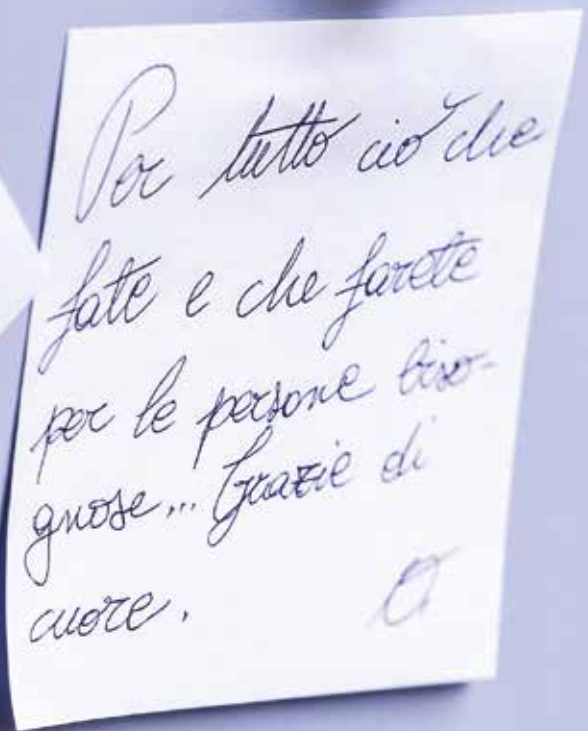 Per tutto ciò che
fate e che farete
per le persone biso-
gnose... Grazie di
cuore.